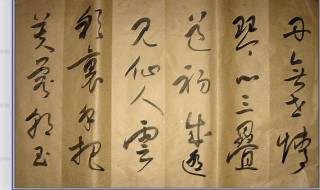 丹無世情
琴心三疊
道初成遙
見仙人雲
彩裏手把
芙蓉朝玉